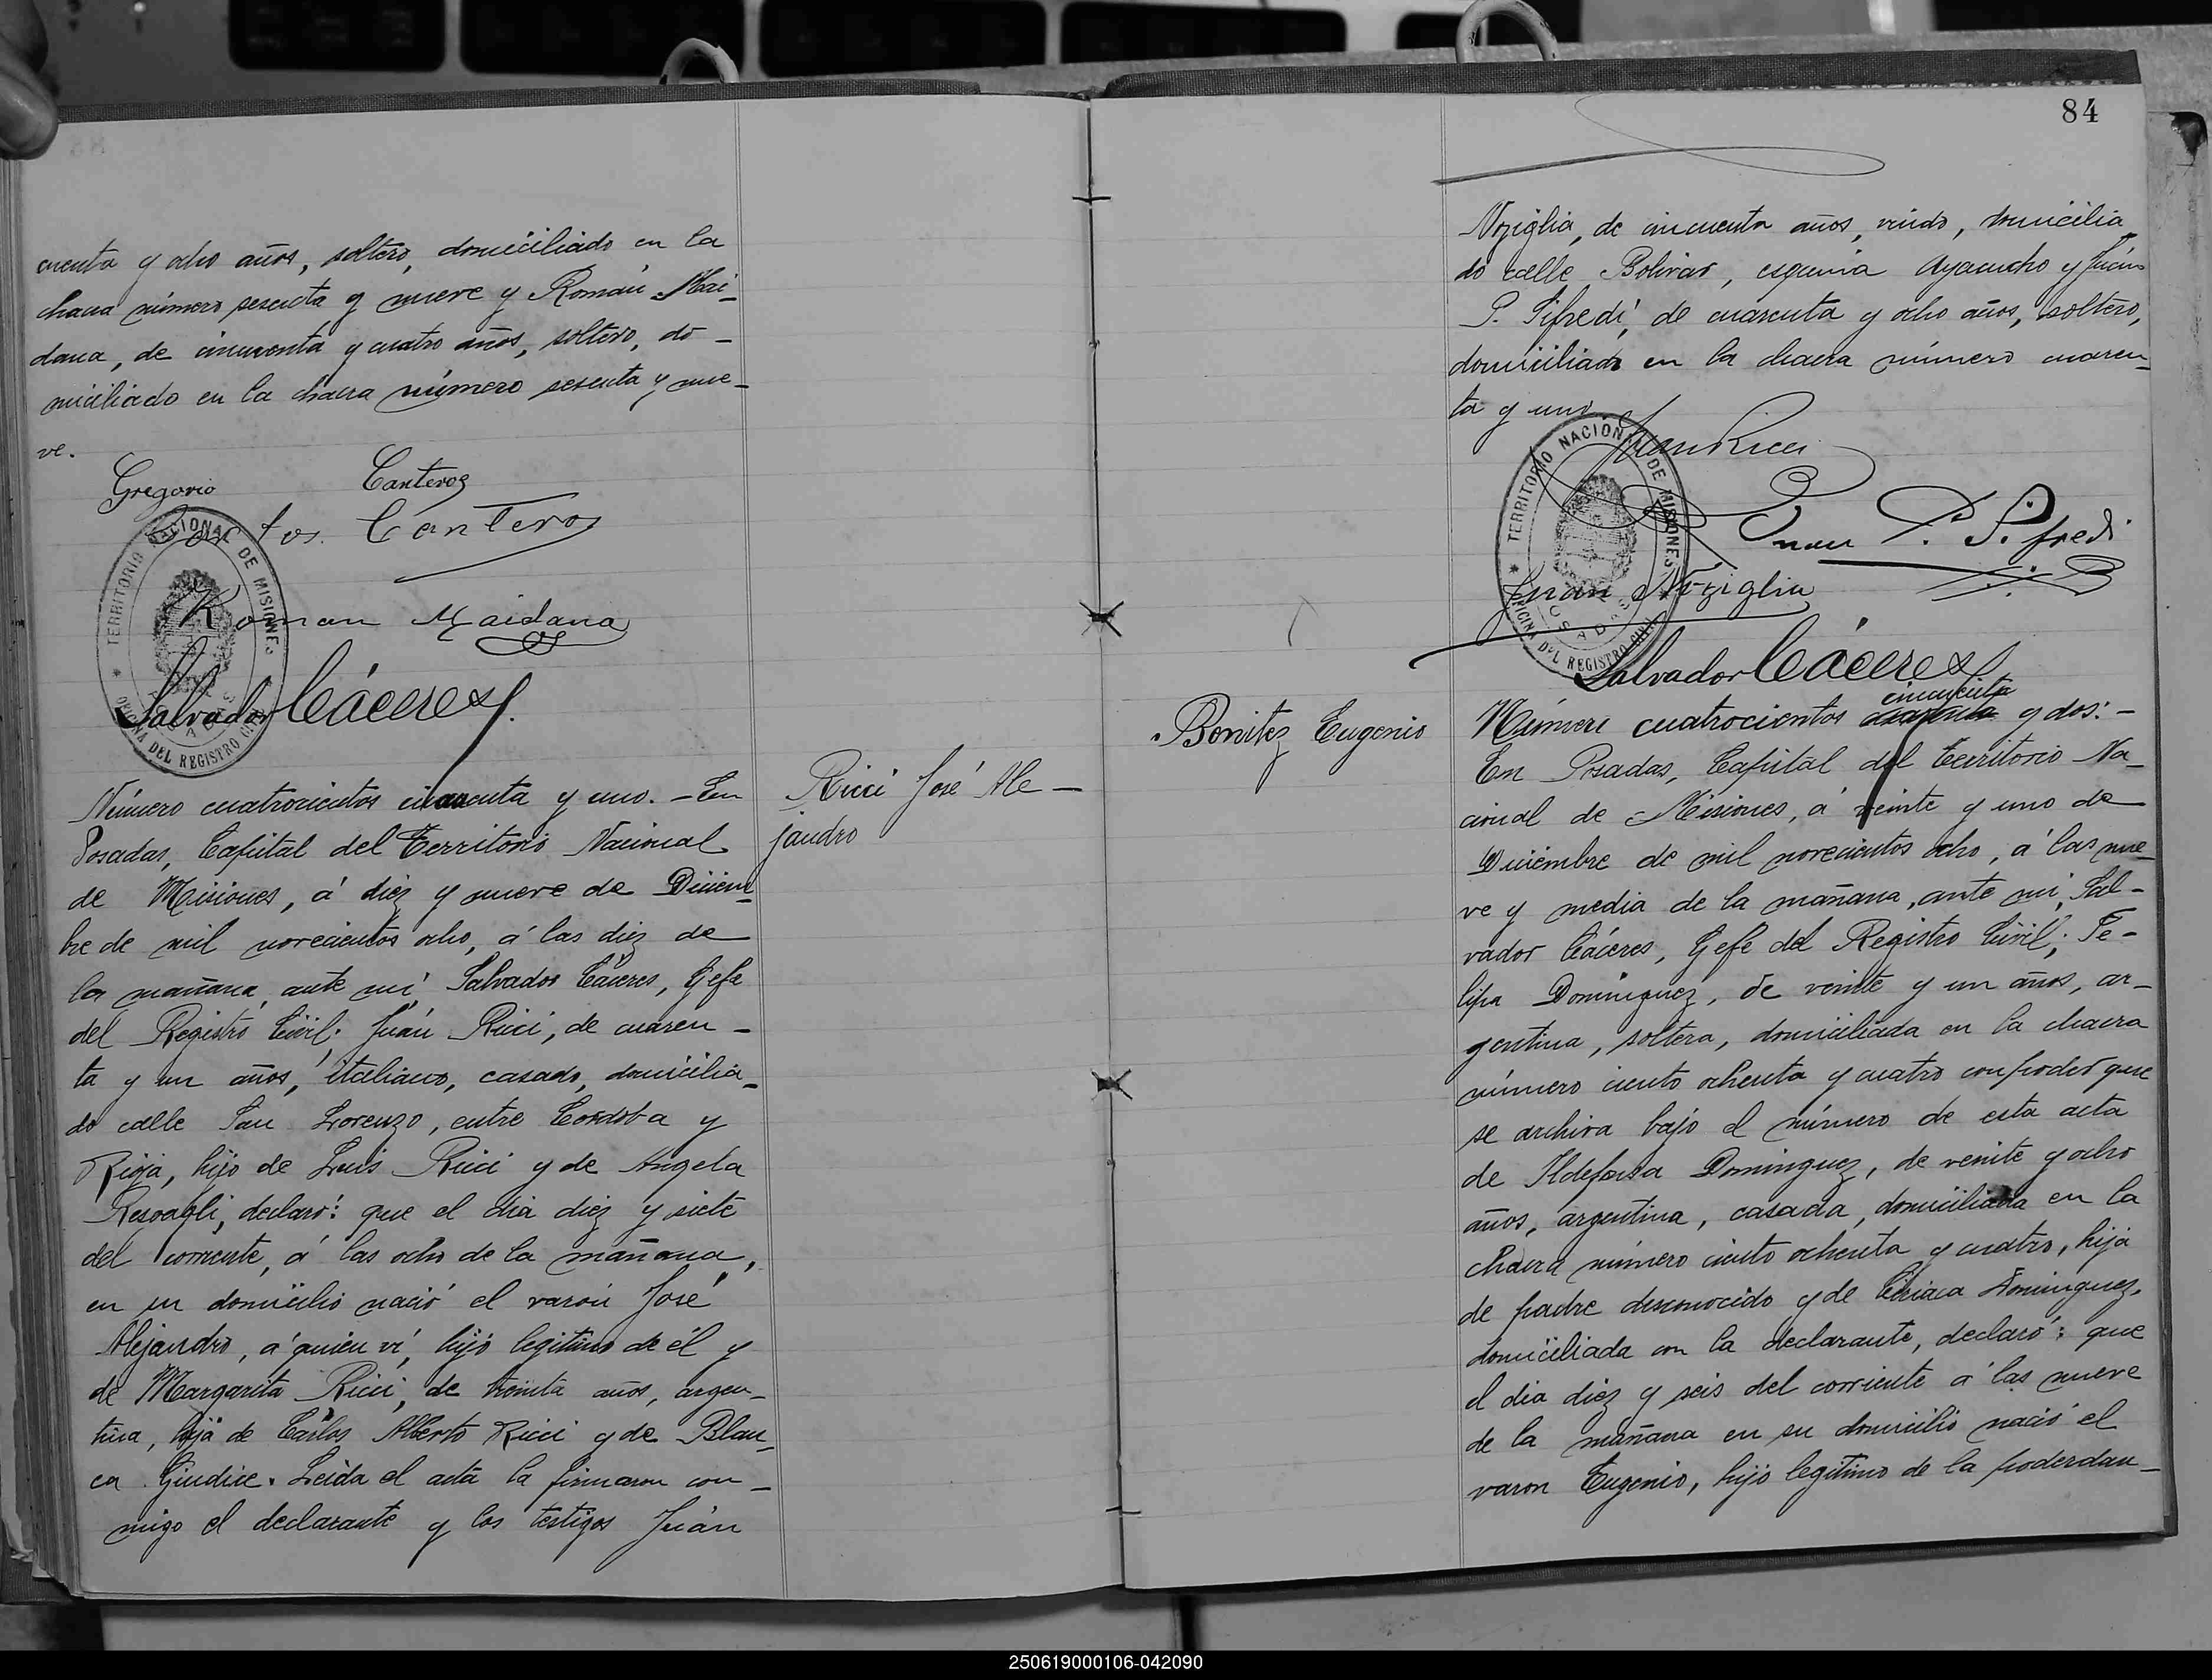 cuenta y ocho años, soltero, domiciliado en la
chacra número sesenta y nueve y Román Mai-
dana, de cincuenta y cuatro años, soltero, do-
miciliado en la chacra número sesenta y nue-
ve.
Gregorio Canteroz
Santos Canteros
Roman Maidana
Salvador Cáceres
TERRITORIO NACIONAL DE MISIONES
POSADAS
OFICINA DEL REGISTRO CIVIL
Número cuatrocientos cincuenta y uno. - En
Posadas, Capital del Territorio Nacional
de Misiones, á diez y nueve de Diciem-
bre de mil novecientos ocho, á las diez de
la mañana, ante mí, Salvador Cáceres, Gefe
del Registro Civil; Juán Ricci, de cuaren-
ta y un años, italiano, casado, domicilia-
do calle San Lorenzo, entre Cordoba y
Rioja, hijo de Luis Ricci y de Angela
declaró: que el dia diez y siete
del corriente, á las ocho de la mañana,
en su domicilio nació el varón José
Alejandro, á quien ví, hijo legitimo de él y
de Margarita Ricci, de treinta años, argen-
tina, hija de Carlos Alberto Ricci y de Blan-
ca Giudice. Leida el acta la firmaron con-
migo el declarante y los testigos Juán
Ricci José Ale-
jandro
84
Noziglia, de cincuenta años, viudo, domicilia
do calle Bolivar, esquina Ayacucho y Juán
P. Sifredi, de cuarenta y ocho años, soltero,
domiciliado en la chacra número cuaren-
ta y uno
Juan Ricci
Juan P. Sifredi
Juan Noziglia
Salvador Cáceres
TERRITORIO NACIONAL DE MISIONES
POSADAS
OFICINA DEL REGISTRO CIVIL
Benitez Eugenio
cincuenta
Número cuatrocientos y dos: -
En Posadas, Capital del Territorio Na-
cional de Misiones, á veinte y uno de
Diciembre de mil novecientos ocho, á las nue-
ve y media de la mañana, ante mí, Sal-
vador Cáceres, Gefe del Registro Civil; Fe-
lipa Dominguez, de veinte y un años, ar-
gentina, soltera, domiciliada en la chacra
número ciento ochenta y cuatro con poder que
se archiva bajo el número de esta acta
de Ildefonsa Dominguez, de veinte y ocho
años, argentina, casada, domiciliada en la
chacra número ciento ochenta y cuatro, hija
de padre desconocido y de Ciriaca Dominguez,
domiciliada con la declarante, declaró: que
el dia diez y seis del corriente á las nueve
de la mañana en su domicilio nació el
varon Eugenio, hijo legitimo de la poderdan-
250619000106-042090